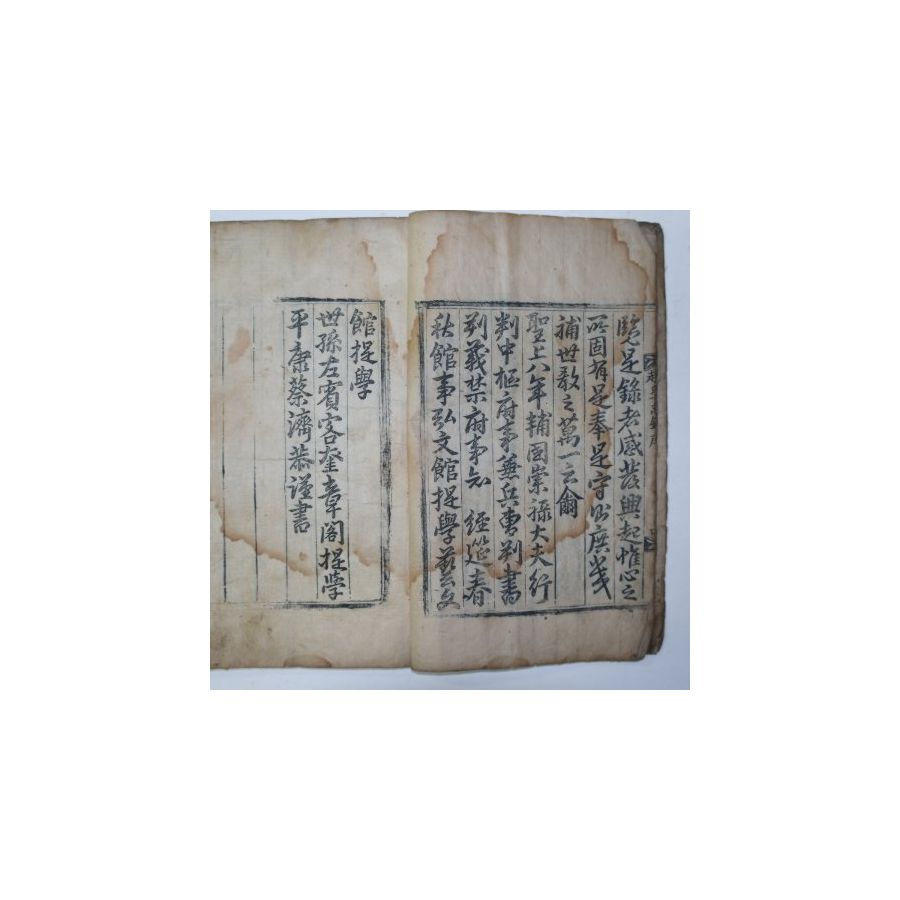 覽是錄者感發興起惟心之
所固有是奉是守則庶幾
補世教之萬一云爾
聖上八年輔國崇祿大夫行
判中樞府事兼兵曹判書
判義禁府事知 經筵春
秋館事弘文館提學藝文
館提學
世孫左賓客奎章閣提學
平康蔡濟恭謹書